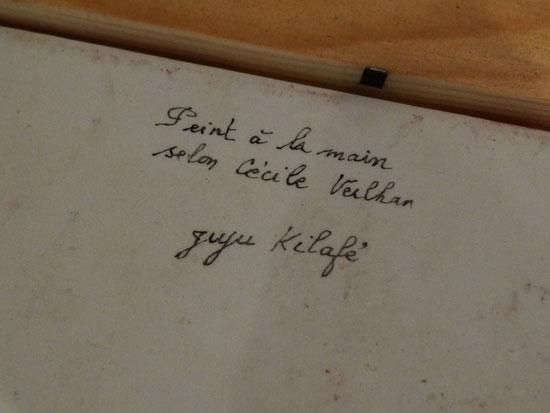 Peint à la main
selon Cécile Veilhan
guyu Kilafé